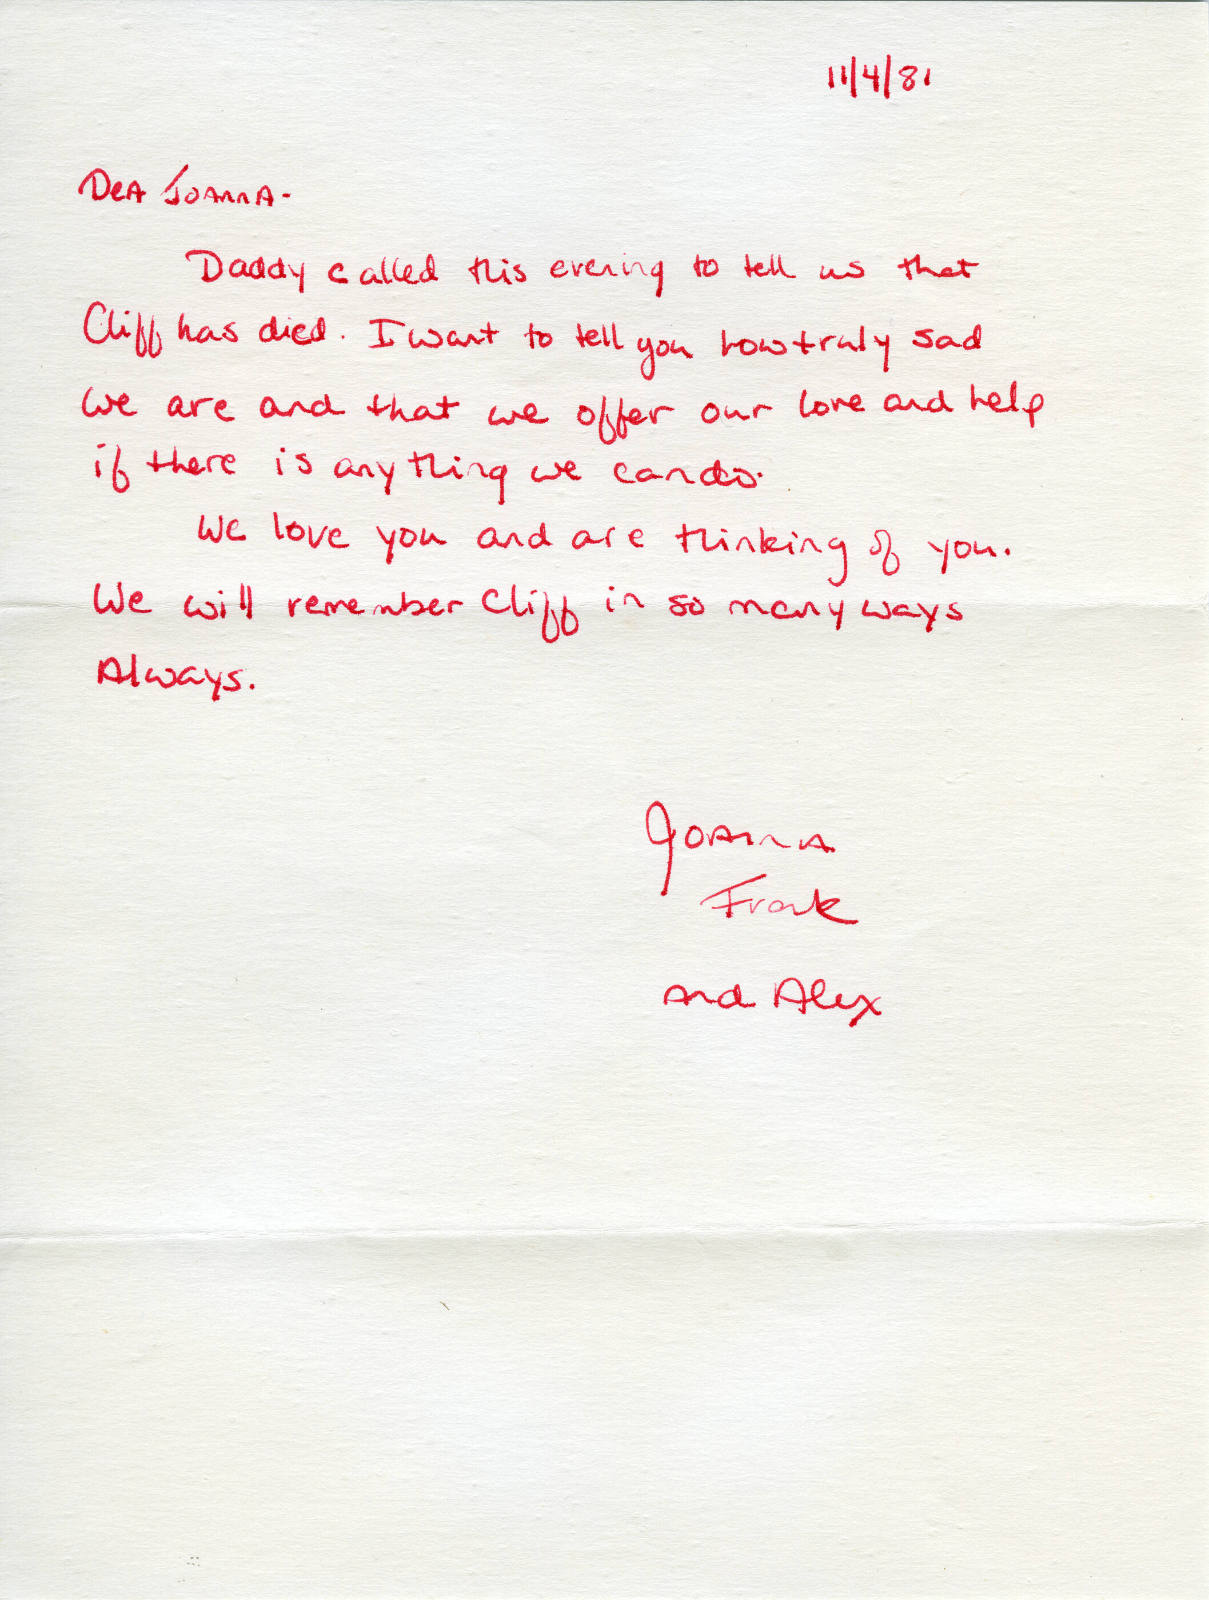 11/4/81
Dea Joanna-
Daddy called this evening to tell us that
Cliff has died. I want to tell you how truly sad
we are and that we offer our love and help
if there is anything we can do.
We love you and are thinking of you.
We will remember Cliff in so many ways
Always.
Joanna
Frank
and Alex